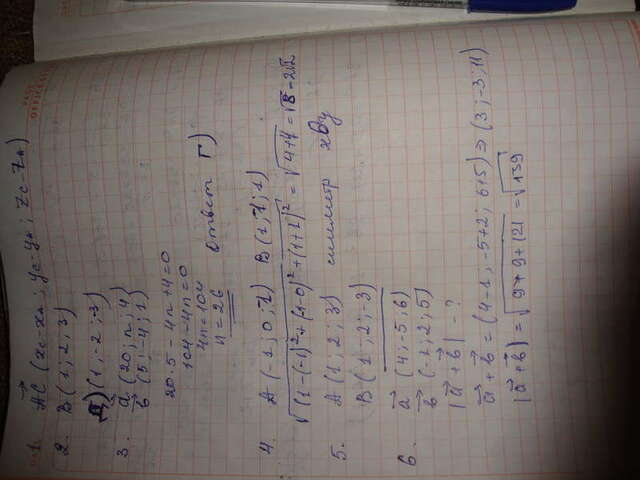 1. AC (xc-xa; yc-ya; zc-za)
2. B (1; 2; 3)
Д) (1; -2; -3)
3. a (20; n; 4)
b (5; -4; 1)
20·5 - 4n + 4 = 0
104 - 4n = 0
4n = 104
n = 26 Ответ Г)
4. A (-1; 0; 1) B (1; 1; 1)
5. A (1; 2; 3) симметр xOy
B (1; 2; -3)
6. a (4; -5; 6)
b (-1; 2; 5)
|a + b| - ?
a + b = (4-1; -5+2; 6+5) ⇒ (3; -3; 11)
|a + b| = √9+9+121 = √139